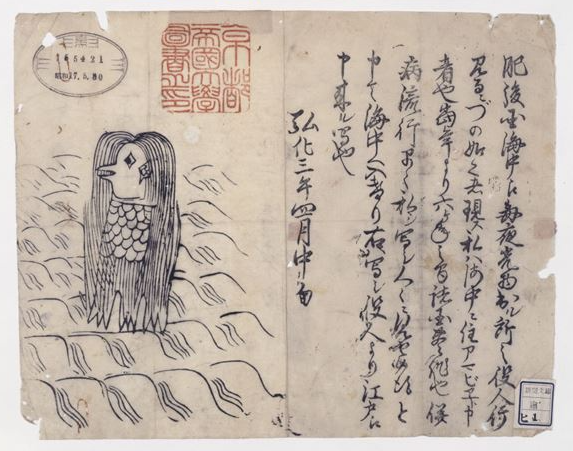 肥後国海中え毎夜光物出ル所之役人行
見るニづの如く者現ス私ハ海中ニ住アマビヱト申
者也当年より六ヶ年之間諸国豊作也併
病流行早々私シ写シ人々ニ見セ候得と
申て海中へ入けり右写シ役人より江戸え
申来ル写也
弘化三年四月中旬
京都
帝國大學
圖書之印
165421
昭和17.5.30
ヒ 1